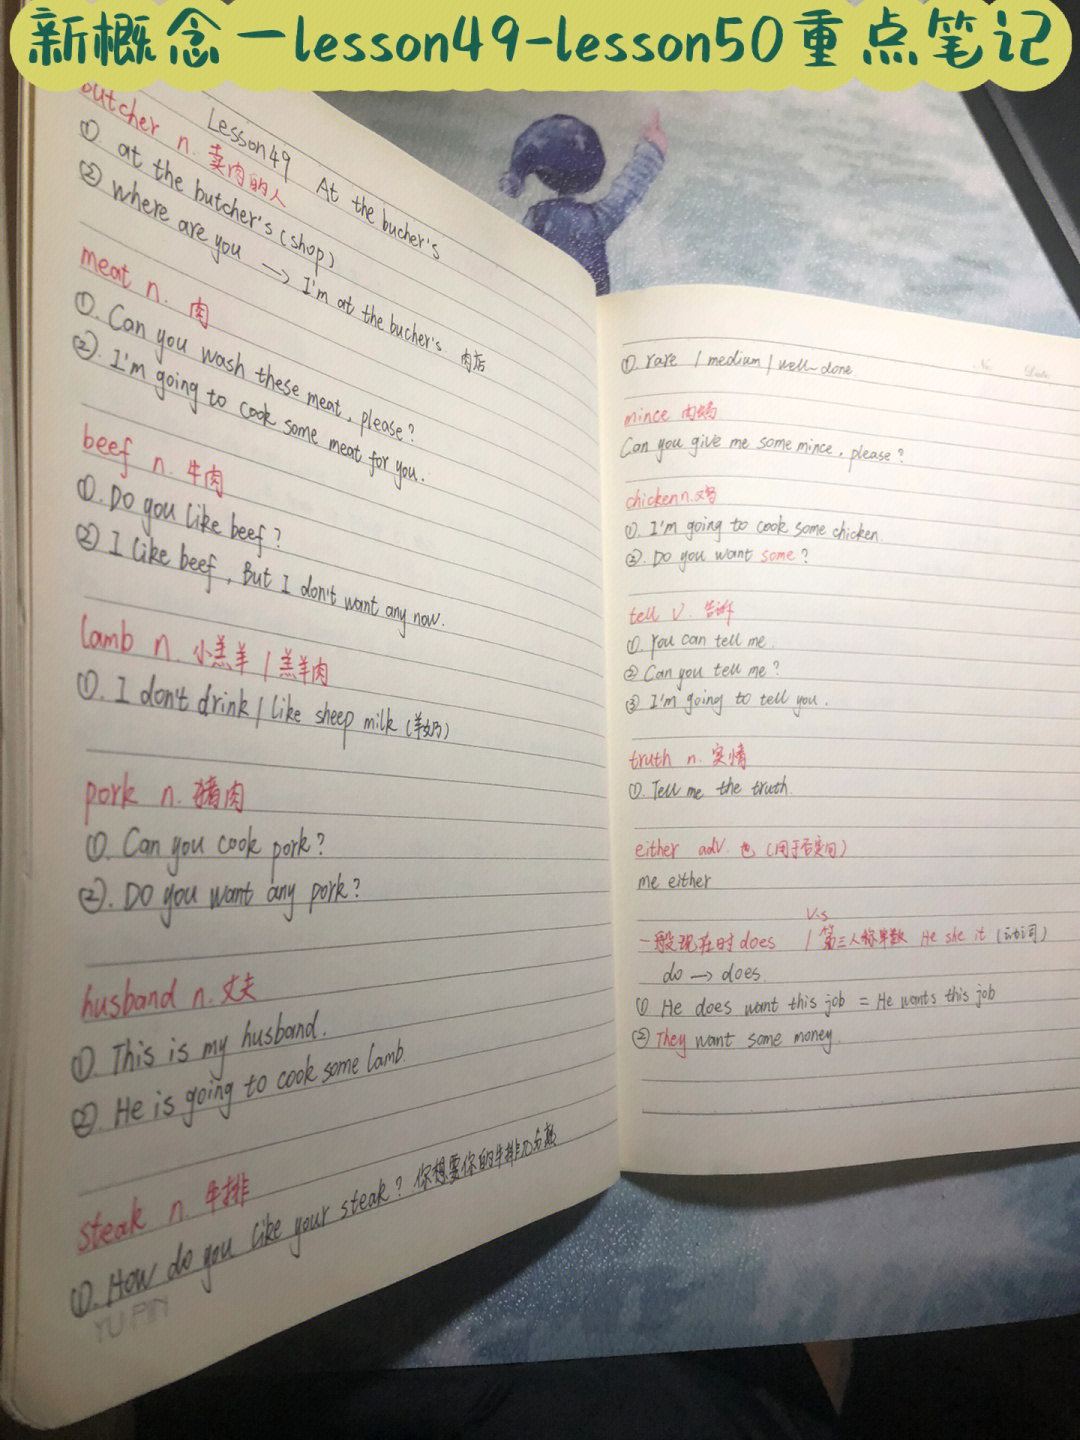 新概念一lesson49-lesson50重点笔记
Lesson49 At the bucher's
butcher n. 卖肉的人
①. at the butcher's (shop)
② where are you → I'm at the bucher's 肉店
meat n. 肉
①. Can you wash these meat, please?
②. I'm going to cook some meat for you.
beef n. 牛肉
①. Do you like beef?
② I like beef, But I don't want any now.
lamb n. 小羔羊 / 羔羊肉
①. I don't drink / like sheep milk (羊奶)
pork n. 猪肉
①. Can you cook pork?
②. Do you want any pork?
husband n. 丈夫
① This is my husband.
②. He is going to cook some lamb.
steak n. 牛排
①. How do you like your steak? 你想要你的牛排几分熟
YU PIN
①. rare / medium / well-done
No. Date.
mince 肉馅
Can you give me some mince, please?
chicken n. 鸡
①. I'm going to cook some chicken.
②. Do you want some?
tell v. 告诉
①. You can tell me.
② Can you tell me?
③ I'm going to tell you.
truth n. 实情
①. Tell me the truth.
either adv. 也 (用于否定句)
me either
V-s
一般现在时does / 第三人称单数 He she it (动词)
do → does.
① He does want this job = He wants this job
② They want some money.